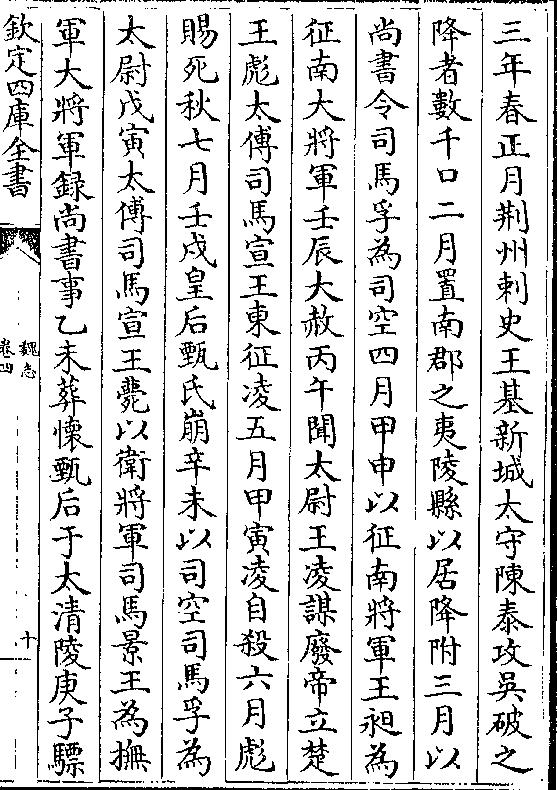 三年春正月荆州刺史王基新城太守陳泰攻吳破之
降者數千口二月置南郡之夷陵縣以居降附三月以
尚書令司馬孚為司空四月甲申以征南將軍王昶為
征南大將軍壬辰大赦丙午聞太尉王凌謀廢帝立楚
王彪太傅司馬宣王東征凌五月甲寅凌自殺六月彪
賜死秋七月壬戌皇后甄氏崩辛未以司空司馬孚為
太尉戊寅太傅司馬宣王薨以衛將軍司馬景王為撫
軍大將軍録尚書事乙未葬懷甄后于太清陵庚子驃
欽定四庫全書
魏志
卷四
十